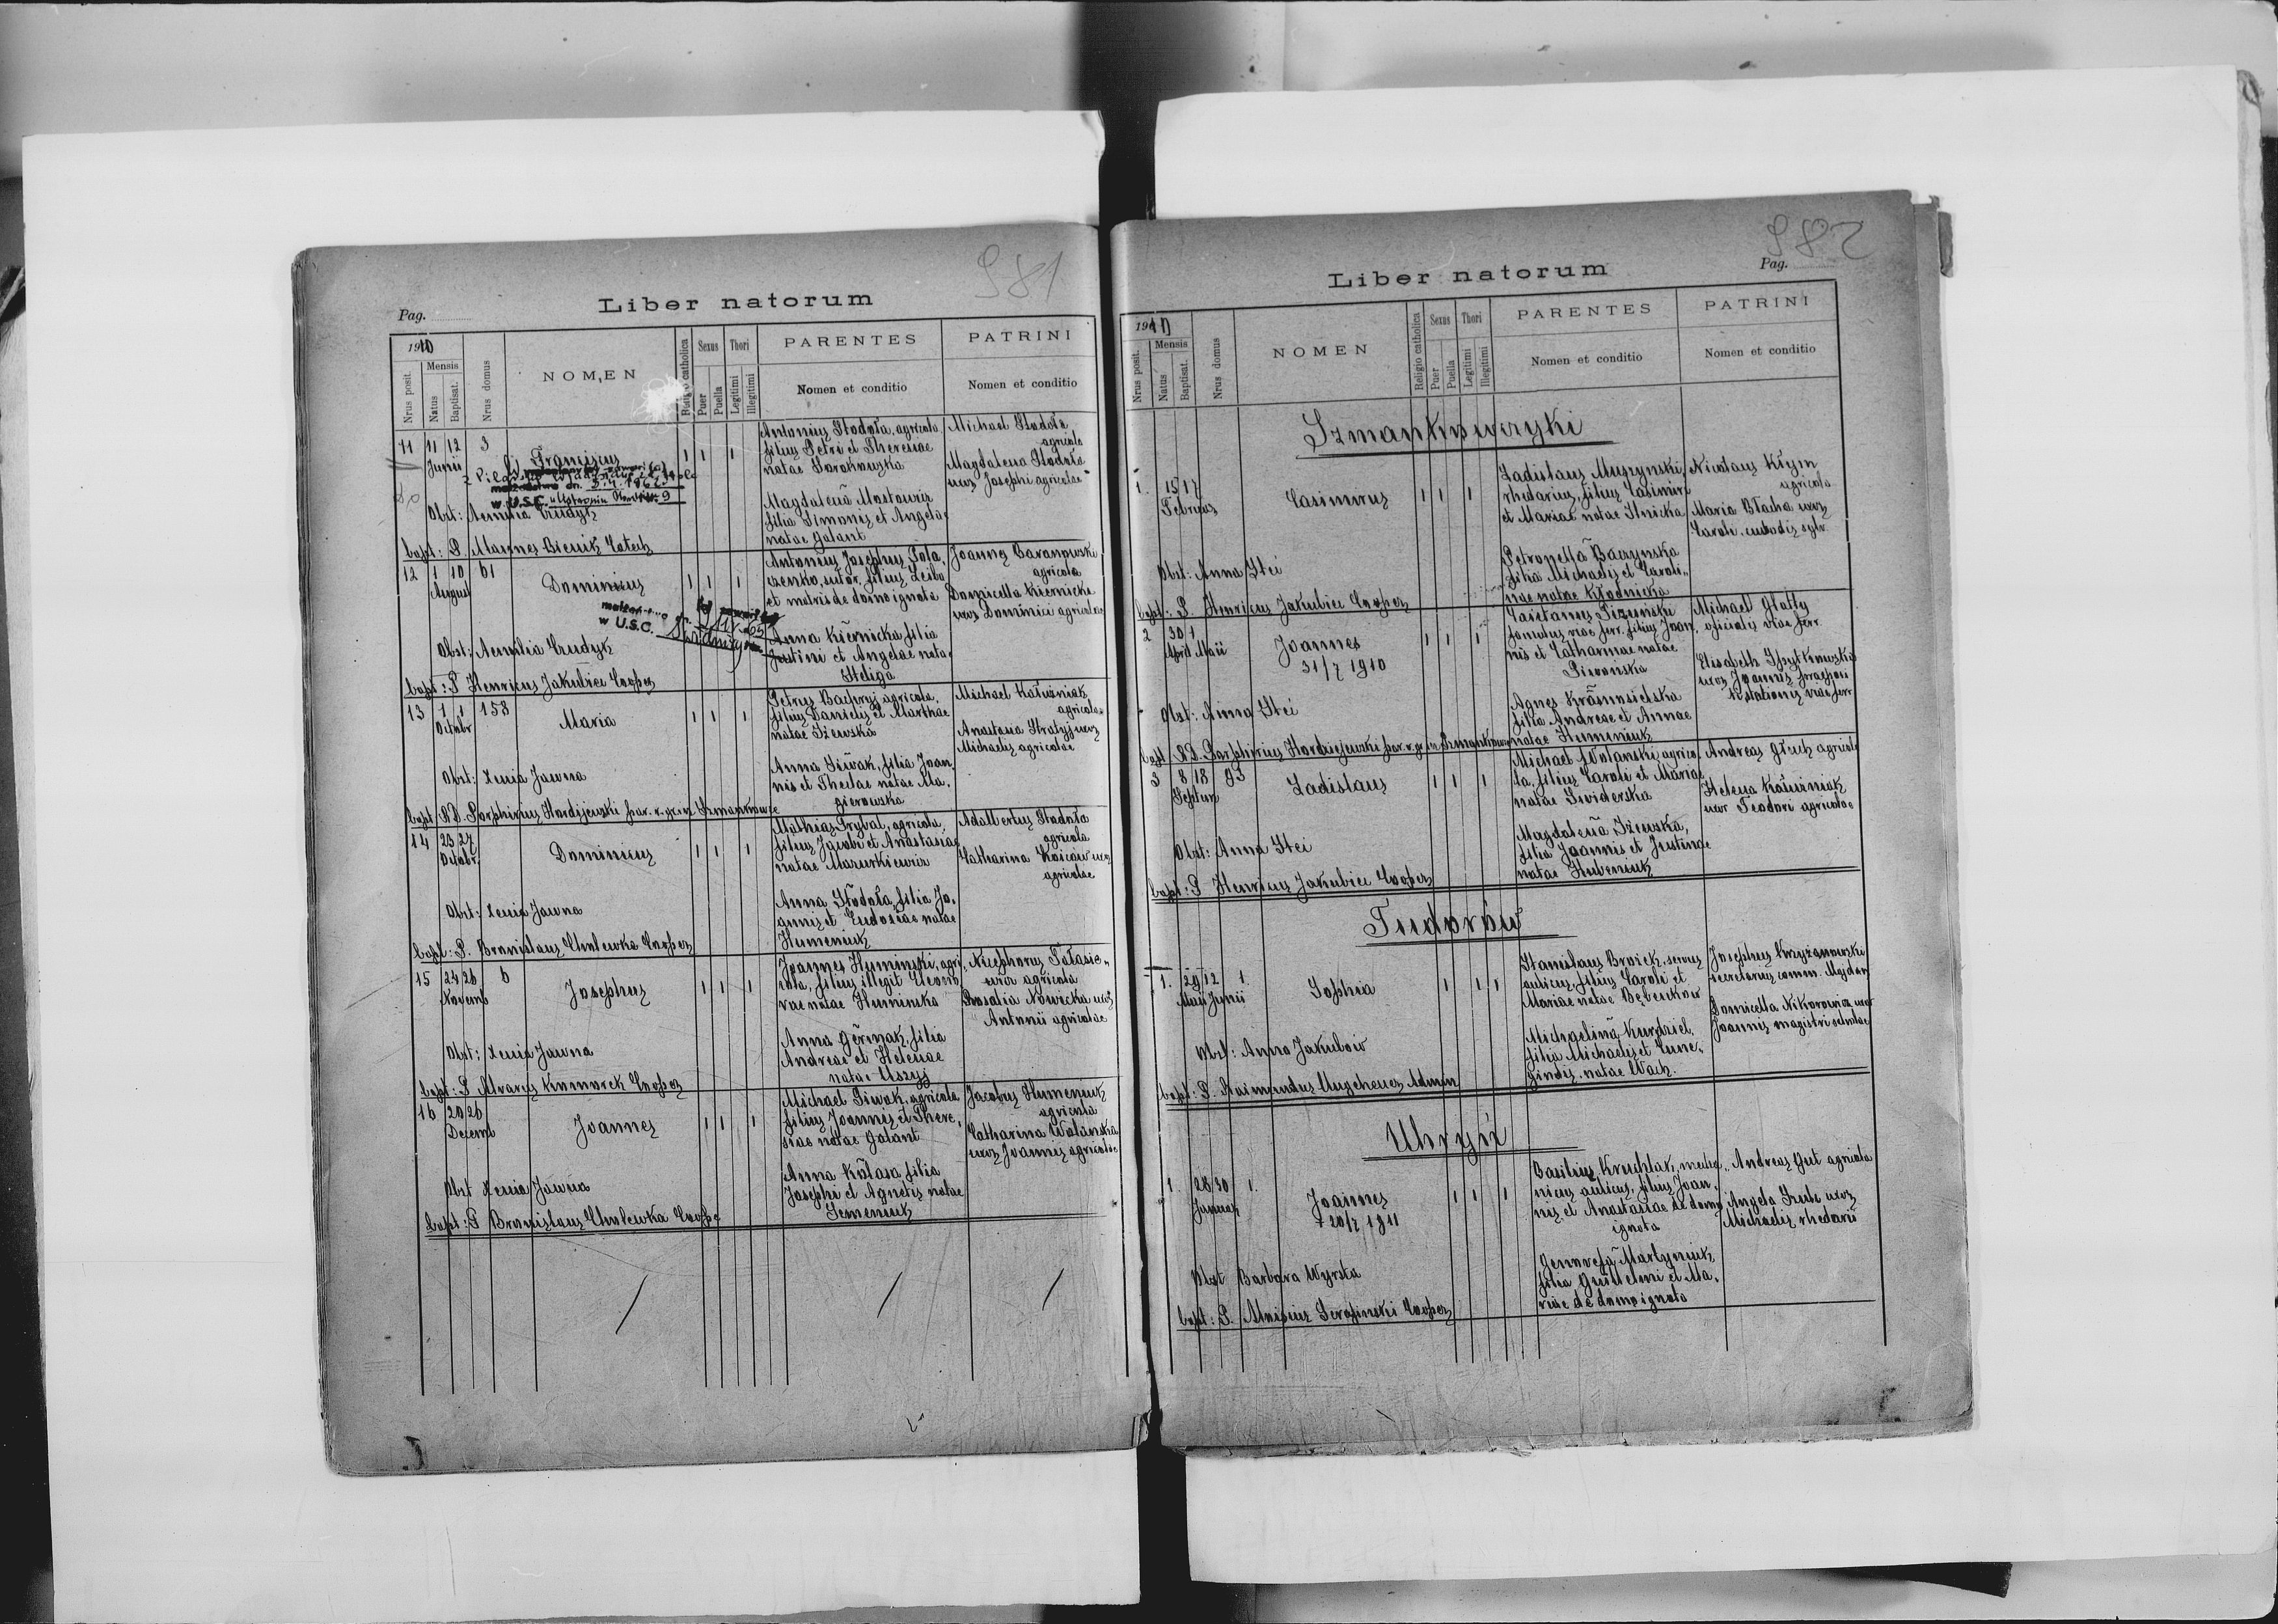 981
Pag.
Liber natorum
1910
Nrus posit.
Mensis
Natus
Baptisat.
Nrus domus
NOMEN
Religio catholica
Sexus
Puer
Puella
Thori
Legitimi
Illegitimi
PARENTES
Nomen et conditio
PATRINI
Nomen et conditio
11 11 12 3
Junii
Franciscus
1 1 1
Antonius Stodoła, agricola,
filius Petri et Theresiae
natae
Magdalena
filia Simonis et Angelae
natae Galant
Michael Stodoła
agricola
Magdalena Stodoła
uxor Josephi agricolae
w U.S.C.
Obst: Aemilia Crudyk
bapt: P. Mannes Bienik Catech
12 1 10 61
August
Dominicus
1 1 1
Antonius Josephus
sutor, filius
et matris de domo ignota
Anna Kiernicka filia
Justini et Angelae natae
Steliga
Joannes Baranowski
agricola
Domicella Kiernicka
uxor Dominici agricolae
w U.S.C.
Obst: Aemilia Crudyk
bapt: P Henricus Jakubiec Cooper
13 1 1 158
Octobr
Maria
1 1 1
Petrus Bachryj agricola,
filius Danielis et Marthae
natae Iżewska
Anna Siwak, filia Joan,
nis et Theclae natae Ma,
gierowska
Michael Kałuźniak
agricola
Anastasia Stratyj uxor
Michaelis agricolae
Obst: Xenia Jawna
bapt: RD. Porphirius Hordijewski par. r. gr. in Szmankowce
14 23 27
Octobr.
Dominicus
1 1 1
Mathias Prybal, agricola,
filius Jacobi et Anastasiae
natae Mazurkiewicz
Anna Stodoła, filia Jo,
annis et Eudoxiae natae
Humeniuk
Adalbertus Stodoła
agricola
Catharina uxor
agricolae
Obst: Xenia Jawna
bapt: P. Bronislaus Cholewka Cooper
15 24 26 6
Novemb
Josephus
1 1 1
Joannes Huminski, agri,
cola, filius illegit
natae Huminska
Anna Germak, filia
Andreae et Helenae
natae Uszyj
Nicephorus
agricola
Rosalia Nowicka uxor
Antonii agricolae
Obst: Xenia Jawna
bapt: P Alvarus Komorek Cooper
16 20 26
Decemb
Joannes
1 1 1
Michael Siwak, agricola
filius Joannis et There,
siae natae Galant
Anna Kałasa filia
Josephi et Agnetis natae
Semeniuk
Jacobus Humeniuk
agricola
Catharina Wolanska
uxor Joannis agricolae
Obst Xenia Jawna
bapt: P Bronislaus Cholewka Cooper
982
Pag.
Liber natorum
1910
Nrus posit.
Mensis
Natus
Baptisat.
Nrus domus
NOMEN
Religio catholica
Sexus
Puer
Puella
Thori
Legitimi
Illegitimi
PARENTES
Nomen et conditio
PATRINI
Nomen et conditio
Szmankowczyki
1. 15 17
Februar
Casimirus
1 1 1
Ladislaus Muszynski,
rhedarius, filius Casimiri
et Mariae natae Ilnicka
Petronella Baczynska
filia Michaelis et Caroli,,
nae natae Kłodnicka
Nicolaus Krym
agricola
Maria Błacha uxor
Caroli custodis sylv.
Obst: Anna Stei
bapt: P. Henricus Jakubiec Cooper
2 30 1
April Maii
Joannes
31/7 1910
1 1 1
Caietanus
famulus viae ferr. filius Joan,
nis et Catharinae natae
Agnes
filia Andreae et Annae
natae Humeniuk
Michael Głatty
officialis viae ferr.
Elisabeth Spytkowska
uxor Joannis
stationis viae ferr
Obst: Anna Stei
bapt RD. Porphirius Hordiejewski par. r. gr. in Szmankowce
3 8 18 93
Septem
Ladislaus
1 1 1
Michael Wolanski, agrico,
la, filius Caroli et Mariae
natae Swiderska
Magdalena Iżewska,
filia Joannis et Justinae
natae Hubeniuk
Andreas Głuch agricola
Helena Kałuźniak
uxor Teodori agricolae
Obst: Anna Stei
bapt: P Henricus Jakubiec Cooper
Tudorów
1. 29 12 1.
Maii Junii
Sophia
1 1 1
Stanislaus Broick, servus
aulicus, filius Caroli et
Mariae natae
Michaelina Kurdziel,
filia Michaelis et Cune,,
gindis, natae Wach.
Josephus Krzyżanowski
secretarius comm. Majdan
Domicella Nikorowicz uxor
Joannis magistri scholae
Obst: Anna Jakubow
bapt: P. Raimundus Ungeheuer Admin
Uhryń
1. 28 30 1.
Januar
Joannes
+ 20/7 1911
1 1 1
Basilius Kruchlak, mecha,,
nicus aulicus, filius Joan,
nis et Anastasiae de domo
ignota
Genowefa Martyniuk
filia Guilelmi et Ma,
riae de domo ignota
Andreas Gut agricola
Angela uxor
Michaelis rhedarii
Obst Barbara Wyrsta
bapt: P. Aloisius Serafinski Cooper